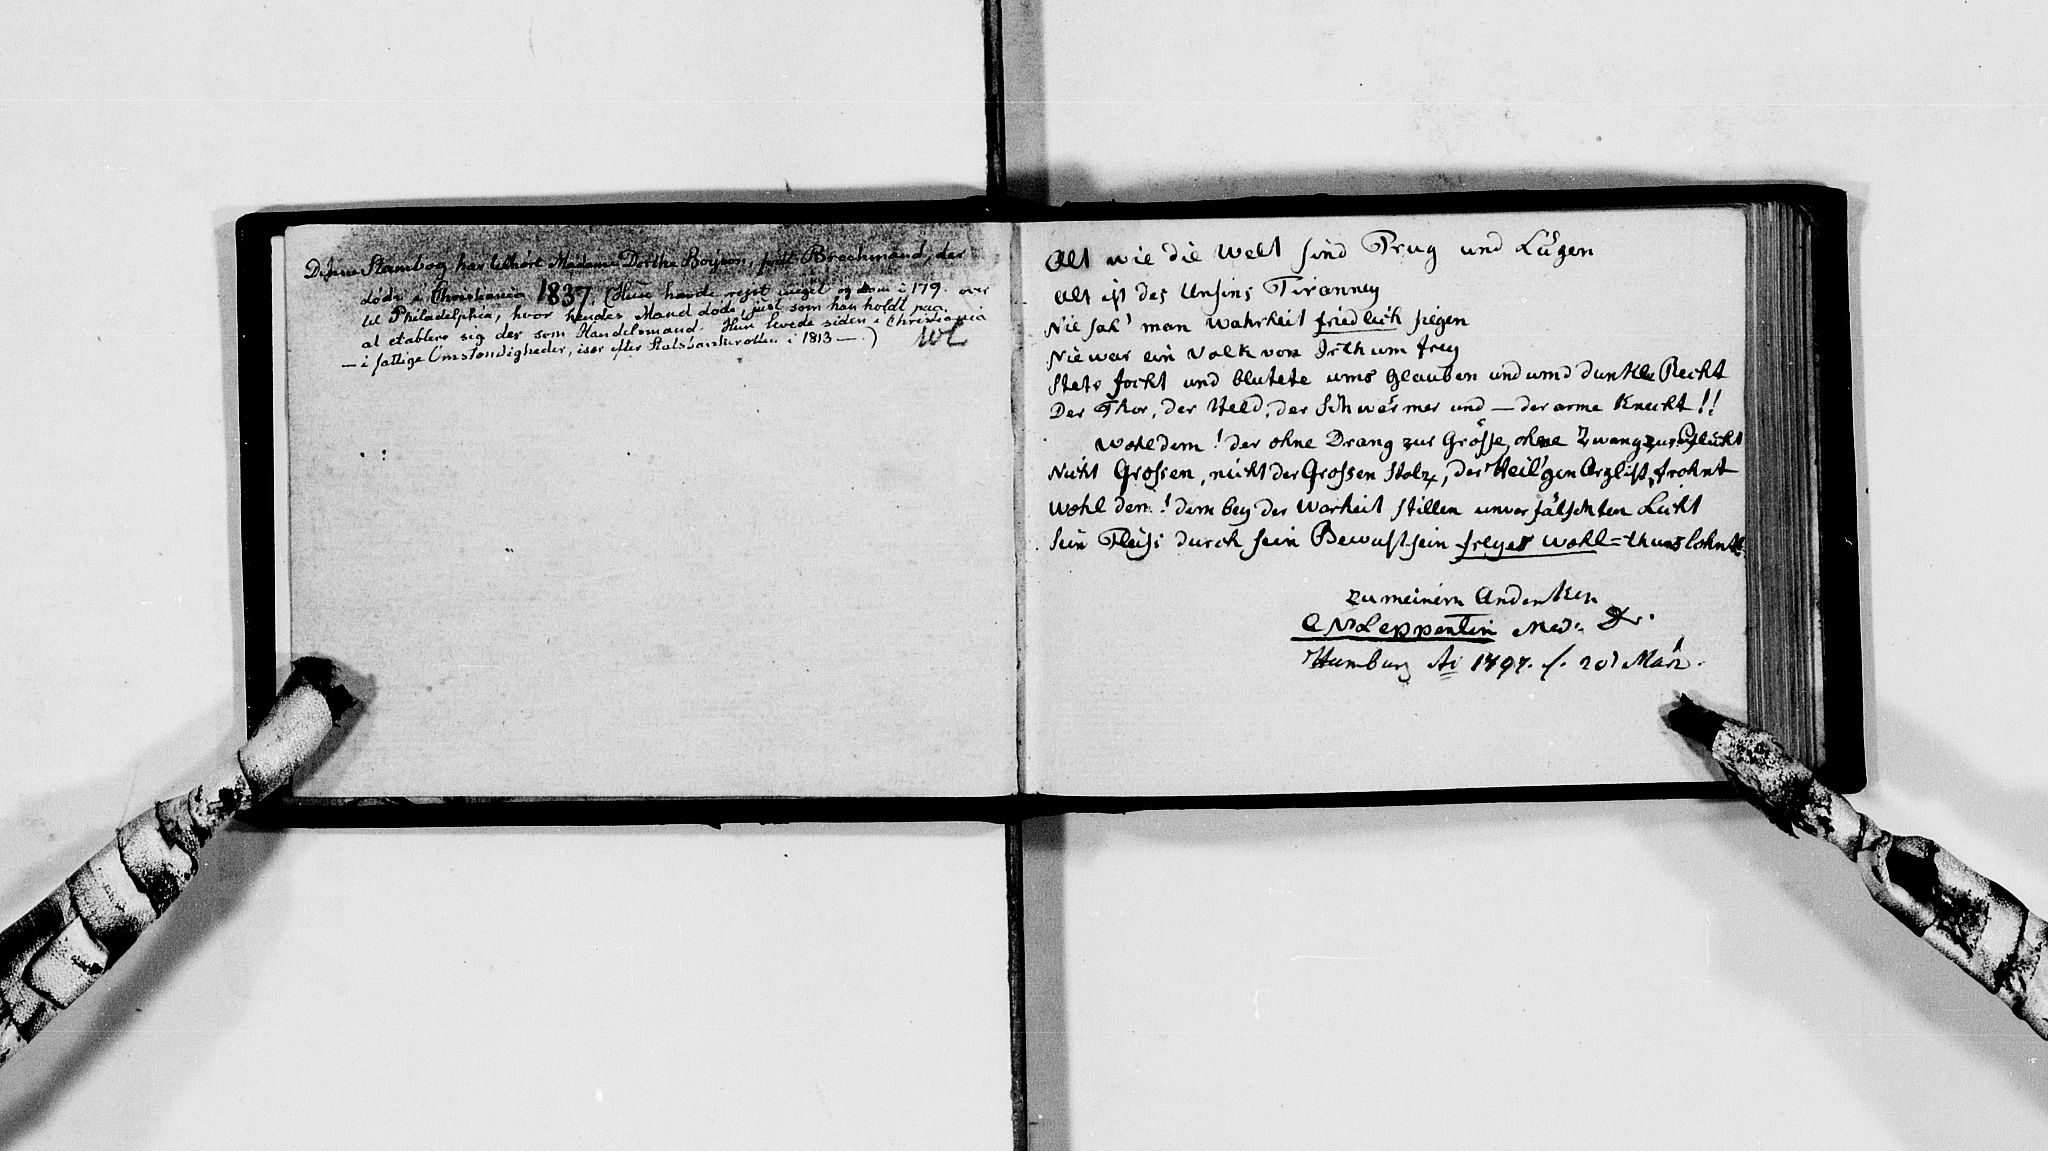 Denne Stambog har tilhört Madame Dorthe Boyson, født Brechmand, der
døde i Christiania 1837. (Hun havde rejst meget og kom i 179. over
til Philadelphia, hvor hendes Mand døde, just som han holdt paa
at etablere sig der som Handelsmand. Hun levede siden i Christiania
— i fattige Omstændigheder, især efter Statsbankerotten i 1813 —.)
Alt wie die Welt sind Trug und Lügen
Alt ist des Unsins Tiranney
Nie sah' man Wahrheit friedlich siegen
Nie war ein Volk von Irthum frey
Stets focht und blutete ums Glauben und umd dunkle Recht
Der Thor, der Held, der Schwärmer und — der arme Knecht!!
Wohl dem! der ohne Drang zur Grösse, ohne Zwang zur Pflicht
Nicht Grossen, nicht der Grossen Stolz, der Heil'gen Arglist frohnt
Wohl dem! dem bey der Warheit stillen unverfälschten Licht
Sein Fleiss durch sein Bewustsein freyes Wohl=thuns lohnt
zu meinem Andenken
Leppentin Med. Dr.
Hamburg Ao 1797. f. 20t März.